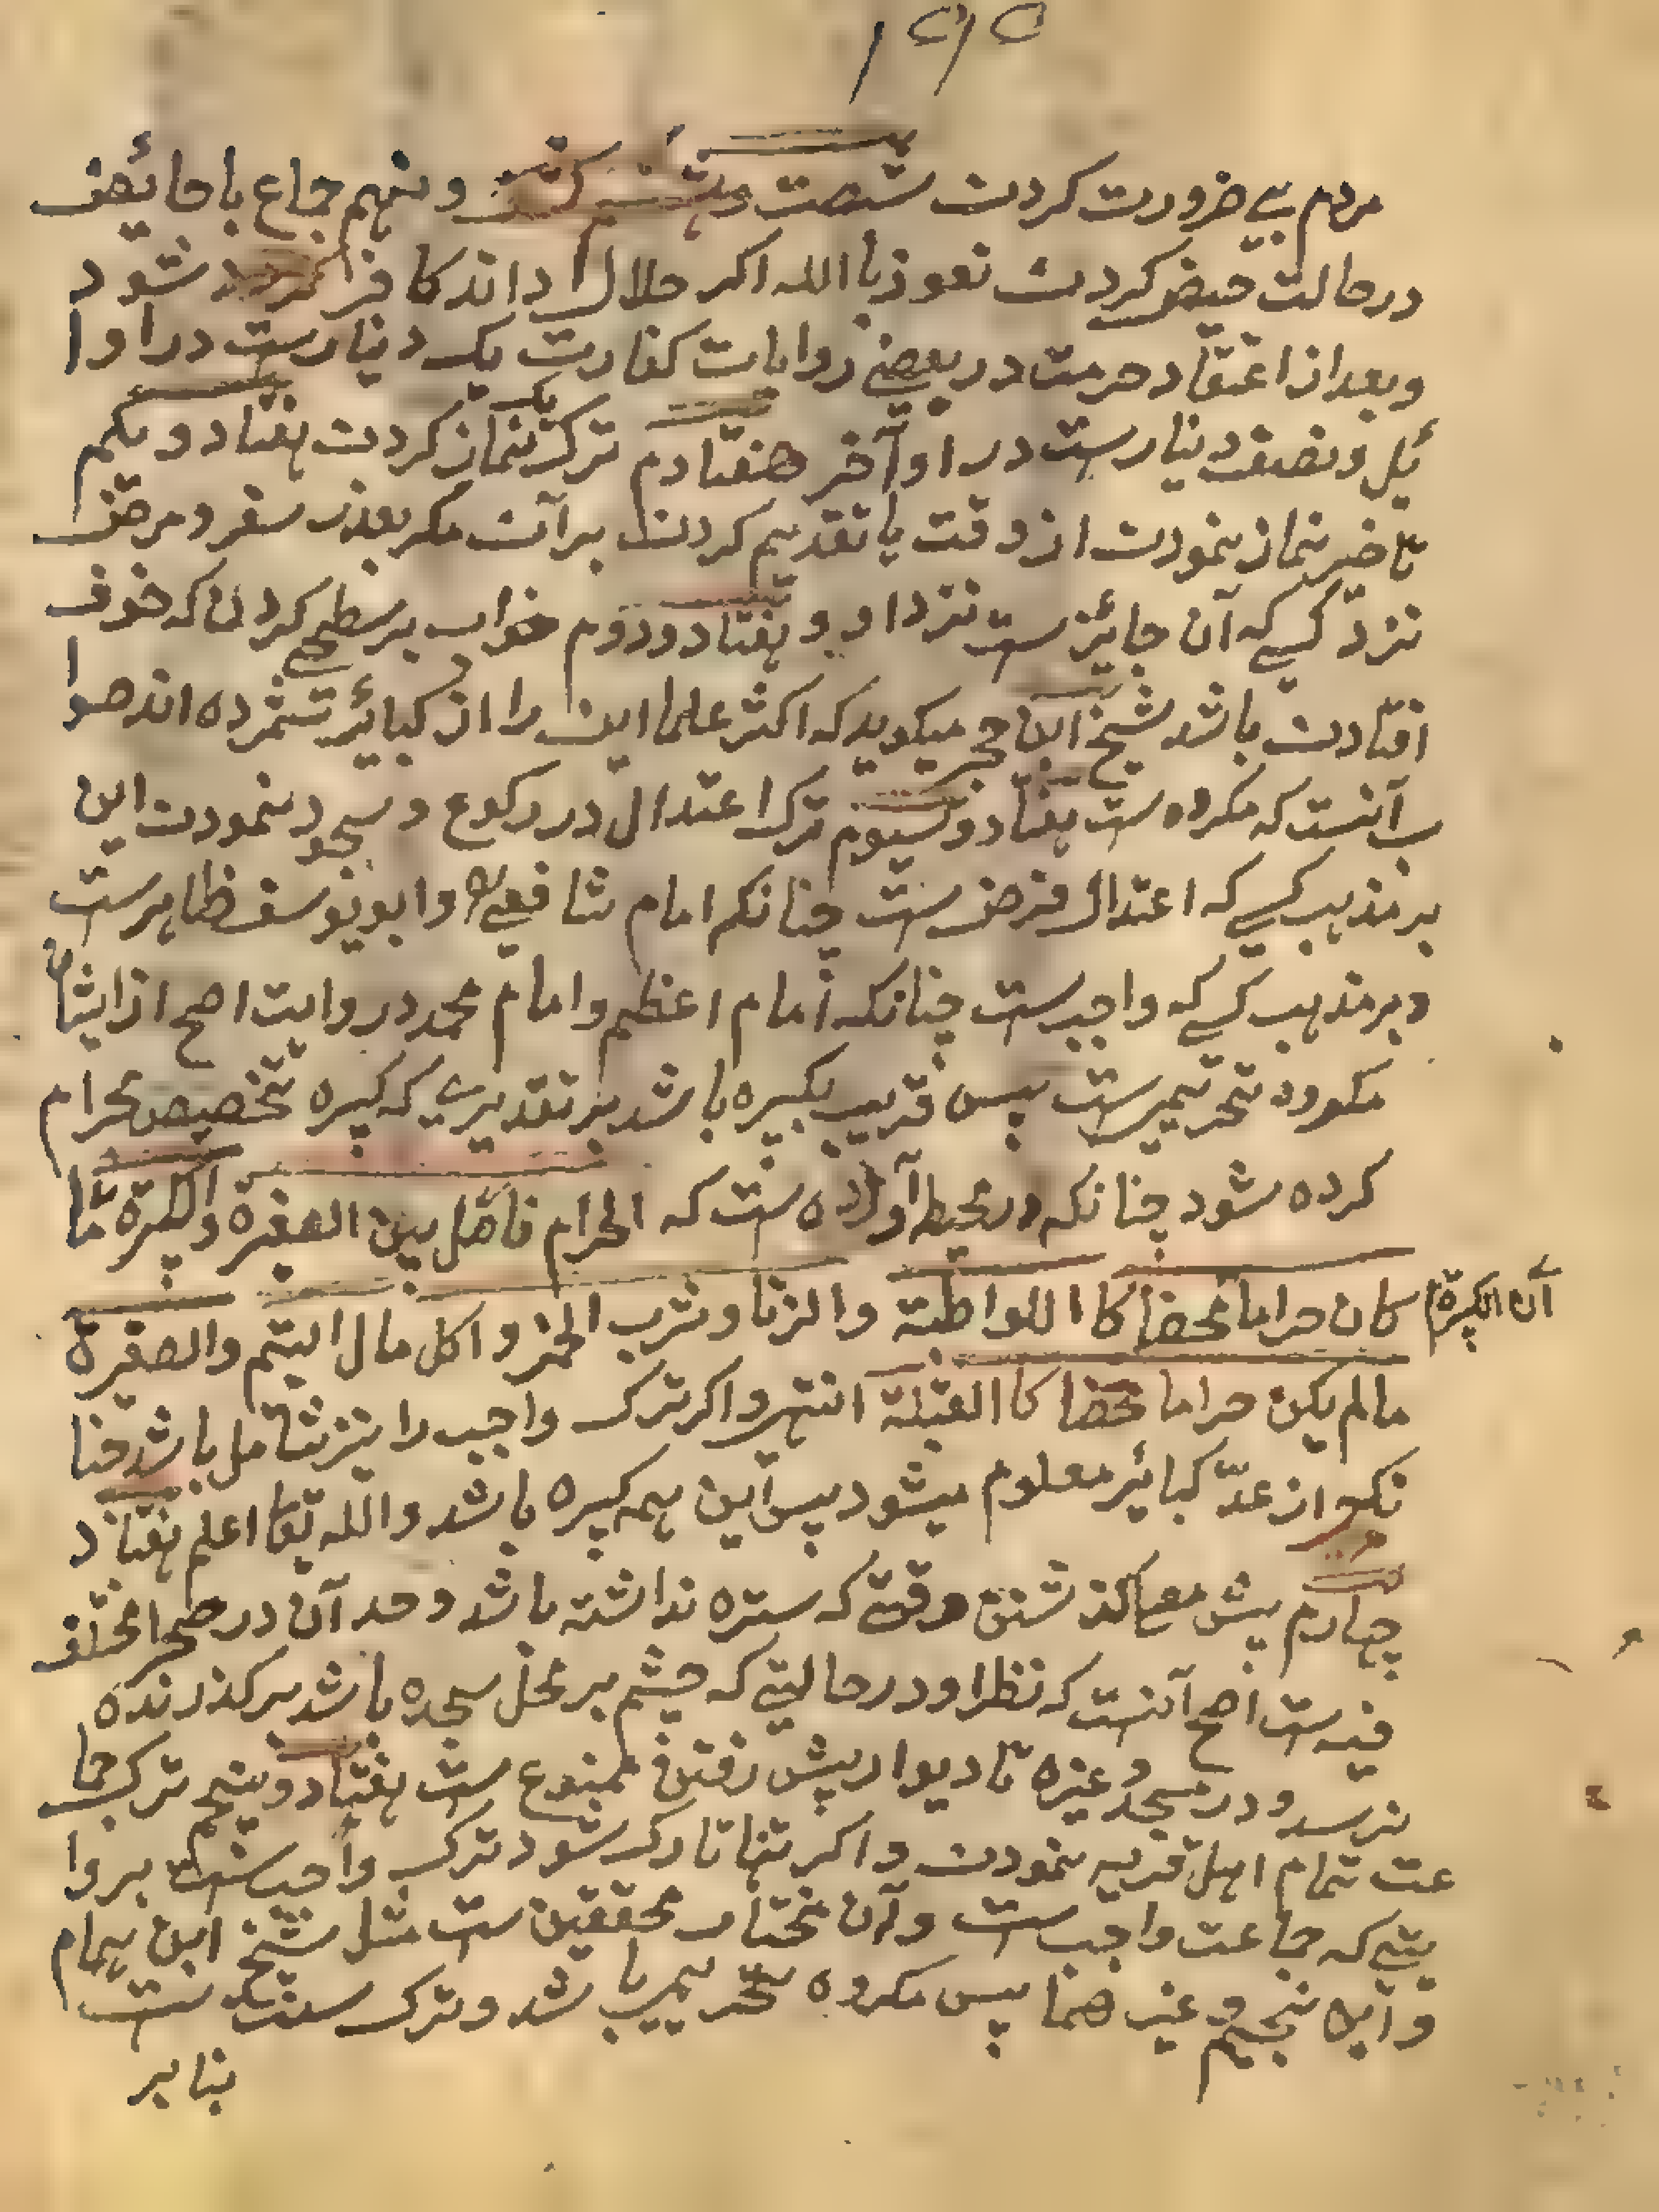 مردم بے ضرورت کردن شصت ونہم جماع با حائض
درحالت حیض کردن نعوذ با الله اکر حلال داند کافر شود
وبعد از اعتقاد حرمت در بعضے روایات کفارت یک دینارست در اوا
ئل ونصف دینارست در اوآخر هفتادم ترک یک نماز کردن ہفتاد ویکم
تاخیر نماز نمودن از وقت یا تقدیم کردن برآن مکر بعذر سفر ومرض
نزد کسے کہ آن جائز ست نزد او و ہفتاد ودوم خواب بر سطحے کردن کہ خوف
افتادن باشد شیخ ابن حجر میکوید کہ اکثر علما این را از کبائر شمرده اند صوا
ب آنست کہ مکروه ست ہفتاد وسیوم ترک اعتدال در رکوع وسجود نمودن این
بر مذہب کسے کہ اعتدال فرض ست چنانکہ امام شافعے وابو یوسف ظاہرست
وبر مذہب کسے کہ واجب ست چنانکہ امام اعظم وامام محمد در روایت اصح از ایشان
مکروه تحریمیست پس قریب بکبیره باشد بر تقدیرے کہ کبیره تخصیص بحرام
کرده شود چنانکہ در محیط آورده ست کہ الحرام فاصل بین الصغیرة والکبیرة ما
آن الکبیرة کان حراما محضا کا اللواطة والزنا وشرب الخمر واکل مال الیتیم والصغیرة
مالم یکن حراما محضا کا القبلة انتہی واکر ترک واجب را نیز شامل باشد چنا
نکہ از عدّ کبائر معلوم میشود پس این ہمہ کبیره باشد والله تعا اعلم ہفتاد
چہارم پیش مصلی کذشتن وقتے کہ ستره نداشتہ باشد وحد آن در صحرا مختلف
فیہ ست اصح آنست کہ نظر او درحالیتے کہ چشم بر محل سجده باشد بر کذرنده
نرسد ودر مسجد وغیره تا دیوار پیش رفتن ممنوع ست ہفتاد وپنجم ترک جما
عت تمام اہل قریہ نمودن واکر تنہا تارک شود ترک واجب ست بروا
یتے کہ جماعت واجب ست وآن مختار محققین ست مثل شیخ ابن ہمام
وابن نجیم وغیرهما پس مکروه تحریمیے باشد وترک سنت ست
بنابر